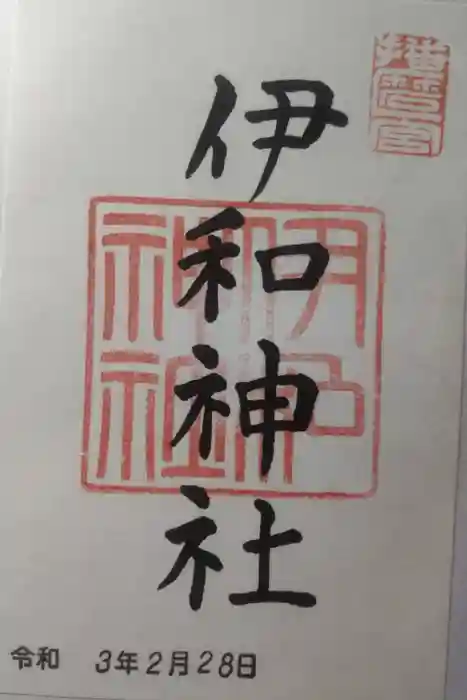 播磨宮
伊和神社
伊和
神社
令和 3年2月28日